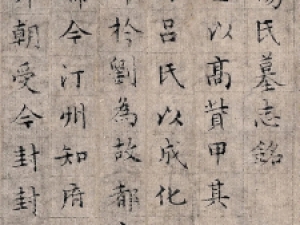 氏墓志銘
以高貲甲其
呂氏以成化
於劉為故都
今汀州知府
朝受今封封